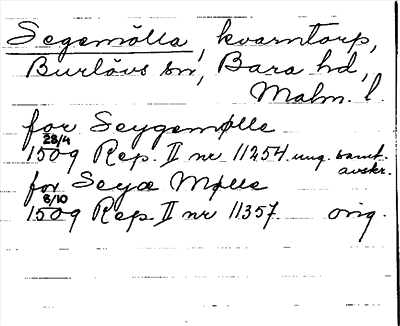 Segemölla, kvarntorp,
Burlövs sn, Bara hd,
Malm. l.
for Seygemølle
28/4
1509 Rep. II nr 11254. ung. samt.
avskr.
for Seyæ Mølle
8/10
1509 Rep. II nr 11357. orig.